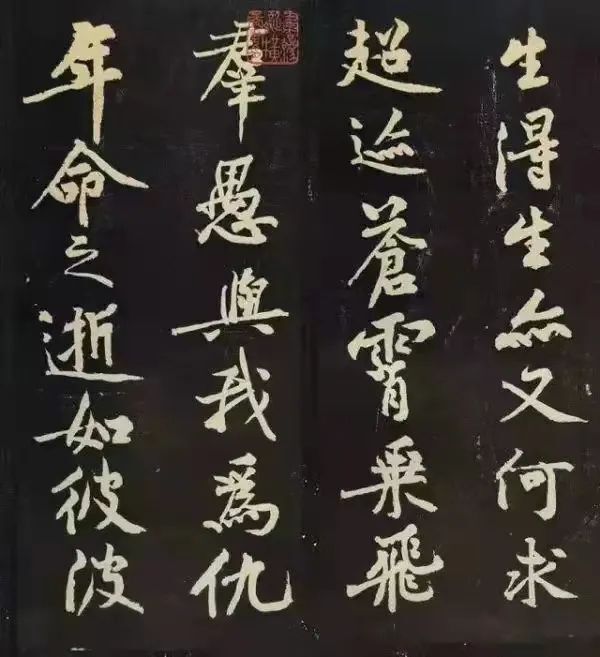 生得生亦又何求
超迹蒼霄乗飛
羣愚與我為仇
年命之逝如彼波